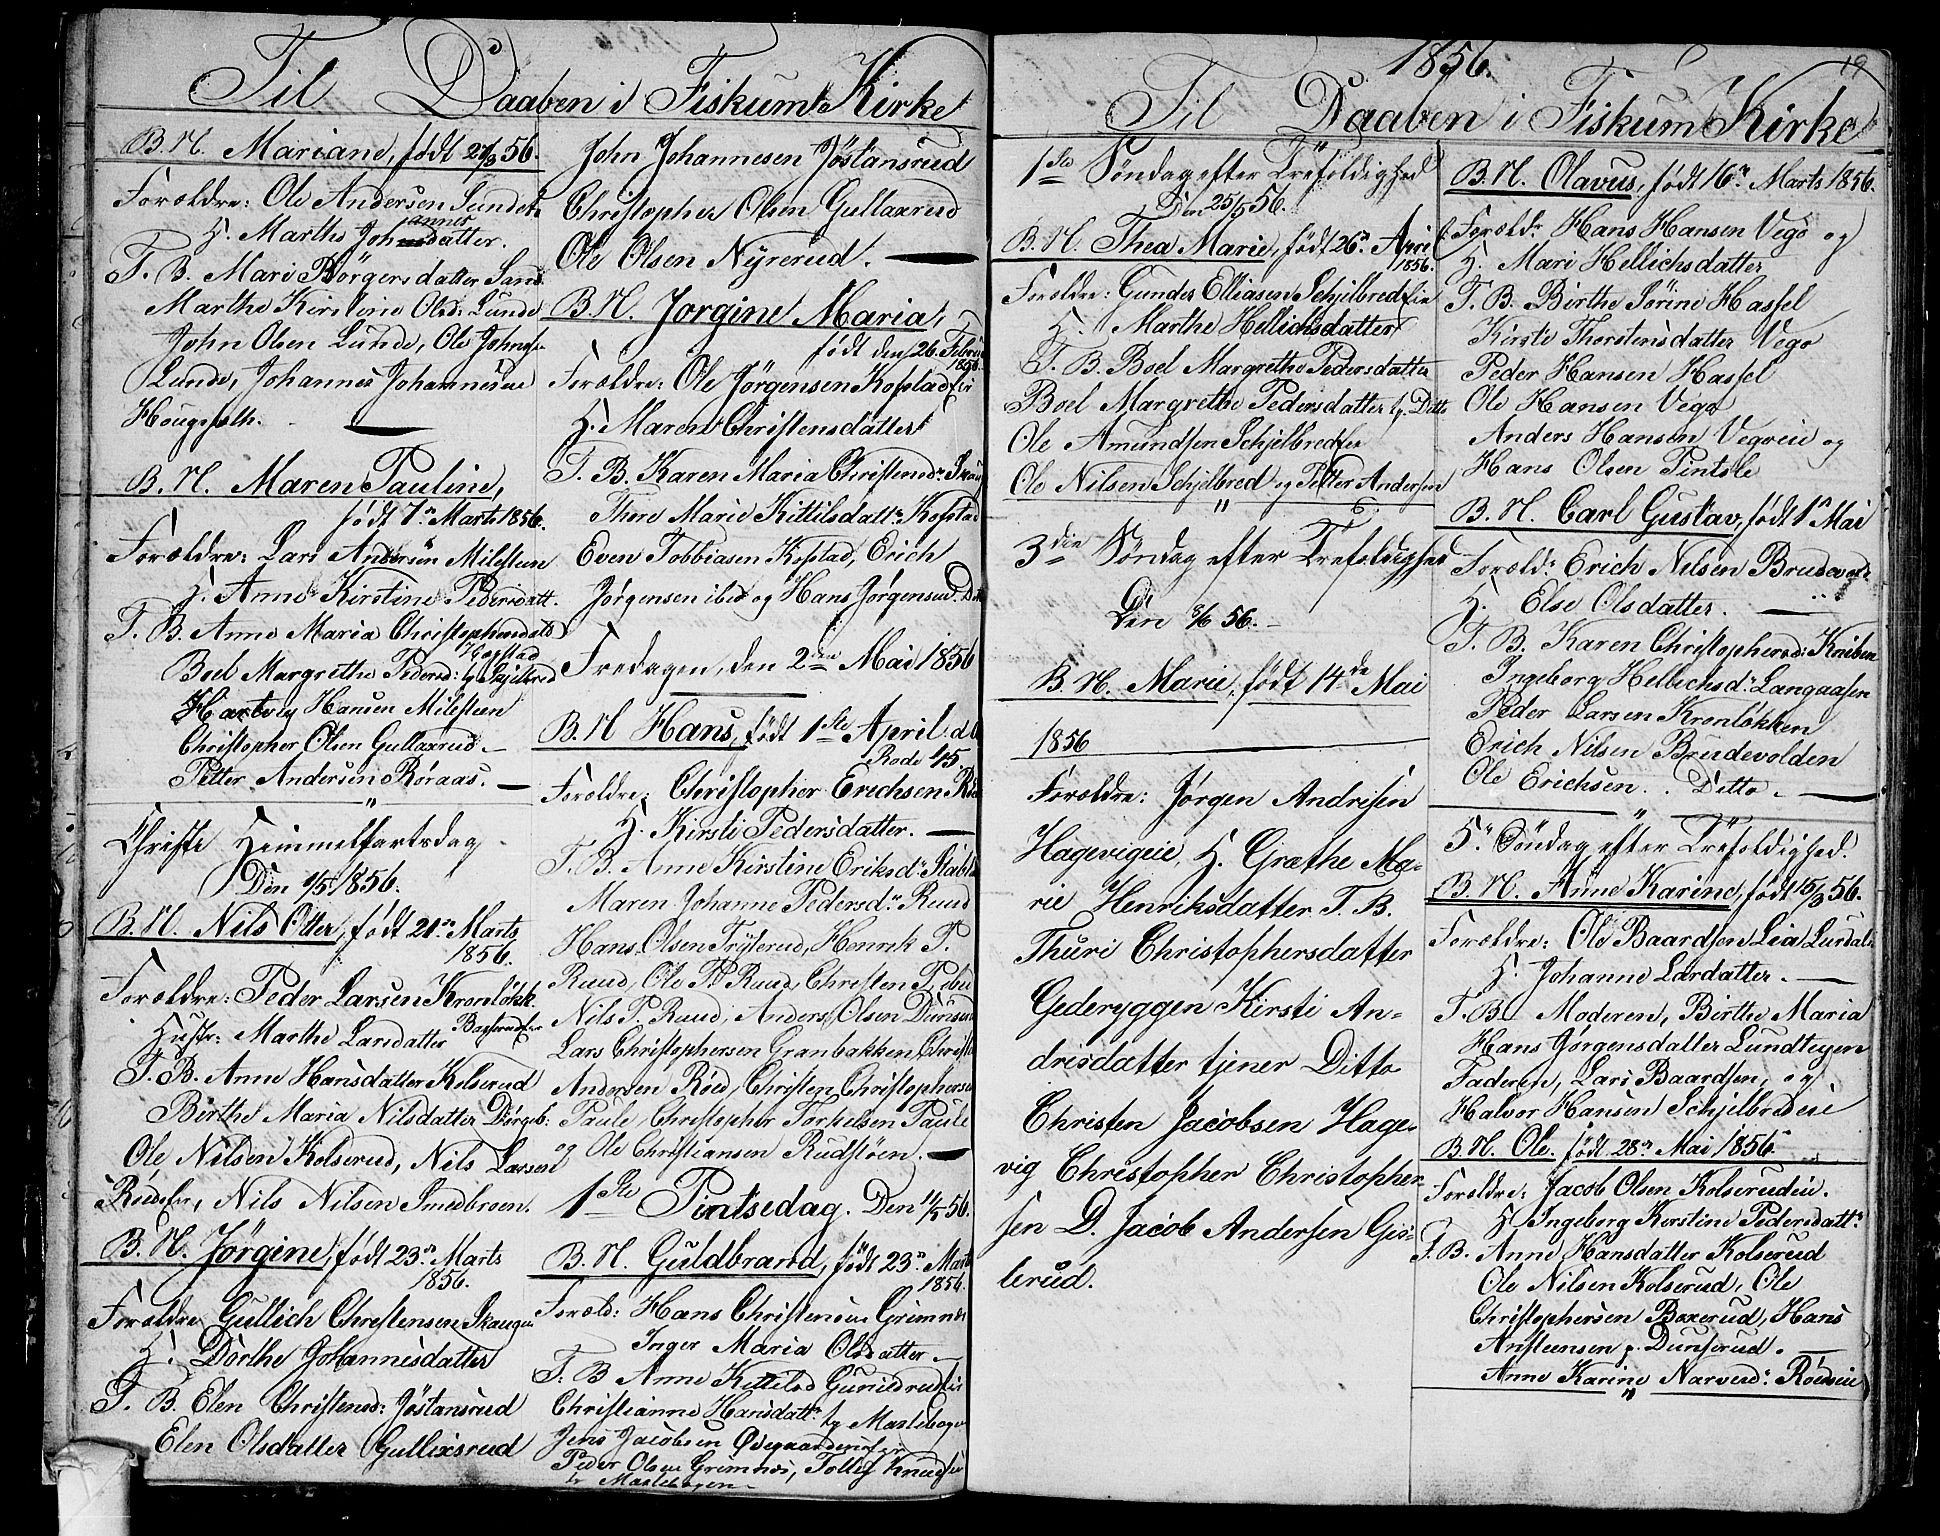 Til Daaben i Fiskum Kirke
B. N. Mariane, født 21/3 56.
Forældre: Ole Andersen Lunde
H. Marthe Johannesdatter.
T. B. Mari Børgersdatter
Marthe Kirstine Olsd: Lunde
John Olsen Lunde, Ole Johns:
Lunde, Johannes Johannesen
Hougsfoth.
B. N. Maren Pauline,
født 7de Marts 1856.
Forældre: Lars Andersen Milesteen
H. Anne Kirstine Pedersdatt.
T. B. Anne Maria Christophersdatt
Boel Margrethe Pedersd: tj Skjelbred
Hartvig Hansen Milesteen
Christopher Olsen Gullaxrud
Petter Andersen Røraas.
Christi Himmelfartsdag
Den 1/5 1856.
B. N. Nils Otter, født 21de Marts
1856.
Forældre: Peder Larsen Kronløkk
Hustr: Marthe Larsdatter
T. B. Anne Hansdatter Kolserud
Birthe Maria Nilsdatter
Ole Nilsen Kolserud, Nils Larsen
Nils Nilsen Smedbroen.
B. N. Jørgine, født 23de Marts
1856.
Forældre Gullich Christensen Skaugen
H. Dorthe Johannesdatter
T. B. Elen Christensd: Jøstansrud
Elen Olsdatter Gullixsrud
John Johannesen Jøstansrud
Christopher Olsen Gullaxrud
Ole Olsen Nyrerud.
B. N. Jorgine Maria,
født den 26. Februar
1856.
Forældre: Ole Jørgensen Kopstadeie
H. Maren Christensdatter
T. B. Karen Maria Christensd: Skoug
Thore Marie Kittilsdatt: Kopstad
Even Tobbiasen Kopstad, Erich
Jørgensen ibid og Hans Jørgensen D
Fredagen, den 2den Mai 1856
B. N Hans, født 1ste April
Rode 45.
Forældre: Christopher Erichsen Røed
H. Kirsti Pedersdatter.
T. B. Anne Kirstine Eriksd:
Maren Johanne Pedersd: Ruud
Hans Olsen Fryserud, Henrik P.
Ruud, Ole P. Ruud, Christen P. ibid
Nils P. Ruud, Anders Olsen Dunserud
Lars Christophersen Granbakken,
Andersen Røed, Christen Christophersen
Paule, Christopher Torkelsen Paule
og Ole Christiansen Rudstøen.
1ste Pintsedag. Den 11/5 56.
B. N. Guldbrand, født 23de Marts
1856.
Foræld: Hans Christensen Grimnes
Inger Maria Olsdatter
T. B Anne Kittelsd
Christianne Hansdatt: tj Mastebogen
Jens Jacobsen
Peder Olsen Grimnes, Tollef Knudsen
tj Mastebogen
1856.
19
Til Daaben i Fiskum Kirke
1ste Søndag efter Trefoldighed
Den 25/5 56.
B. N. Thea Marie, født 26de April
1856.
Forældre: Gunder Elliasen Schjelbredeie
H. Marthe Hellichsdatter
T. B. Boel Margrethe Pedersdatter
Boel Margrethe Pedersdatter tj. Ditto
Ole Amundsen Schjelbredeie
Ole Nilsen Schjelbred og Petter Andersen
3die Søndag efter Trefoldighed
Den 8/6 56.
B. N. Marie, født 14de Mai
1856
Forældre: Jørgen Andrisen
Hagevigeie, H. Græthe Ma-
rie Henriksdatter T. B.
Thuri Christophersdatter
Gederyggen Kirsti An-
drisdatter tjener Ditto
Christen Jacobsen Hage-
vig Christopher Christopher-
sen D. Jacob Andersen Gis-
lerud.
B. N. Olavus, født 16de Marts 1856.
Foræld: Hans Hansen Vego og
H. Mari Hellichsdatter
T. B. Birthe Sørine Hassel
Kirsti Thorstensdatter Vego
Peder Hansen Hassel
Ole Hansen Vego
Anders Hansen Vegoeie og
Hans Olsen Pintsle
B. N. Carl Gustav, født 1de Mai
Foræld: Erich Nilsen Brudevold
H. Else Olsdatter.
T. B. Karen Christophersd: Kniben
Ingeborg Hellichsd: Langaasen
Peder Larsen Kronløkken
Erich Nilsen Brudevolden
Ole Erichsen. Ditto.
5te Søndag efter Trefoldighed.
B. N. Anne Karine, født 15/3 56.
Forældre: Ole Baardsen Lia Lurdal
H. Johanne Larsdatter.
T. B. Moderen, Birthe Maria
Hans Jørgensdatter Lundtegen
Faderen, Lars Baardsen, og
Halvor Hansen Schjelbredeie
B. N. Ole. født 28de Mai 1856
Forældre: Jacob Olsen Kolserudeie.
H. Ingeborg Kirstine Pedersdatt:
T. B. Anne Hansdatter Kolserud
Ole Nilsen Kolserud, Ole
Christophersen Baxerud, Hans
Anstensen p. Dunserud.
Anne Karine Narvesd: Røedeie